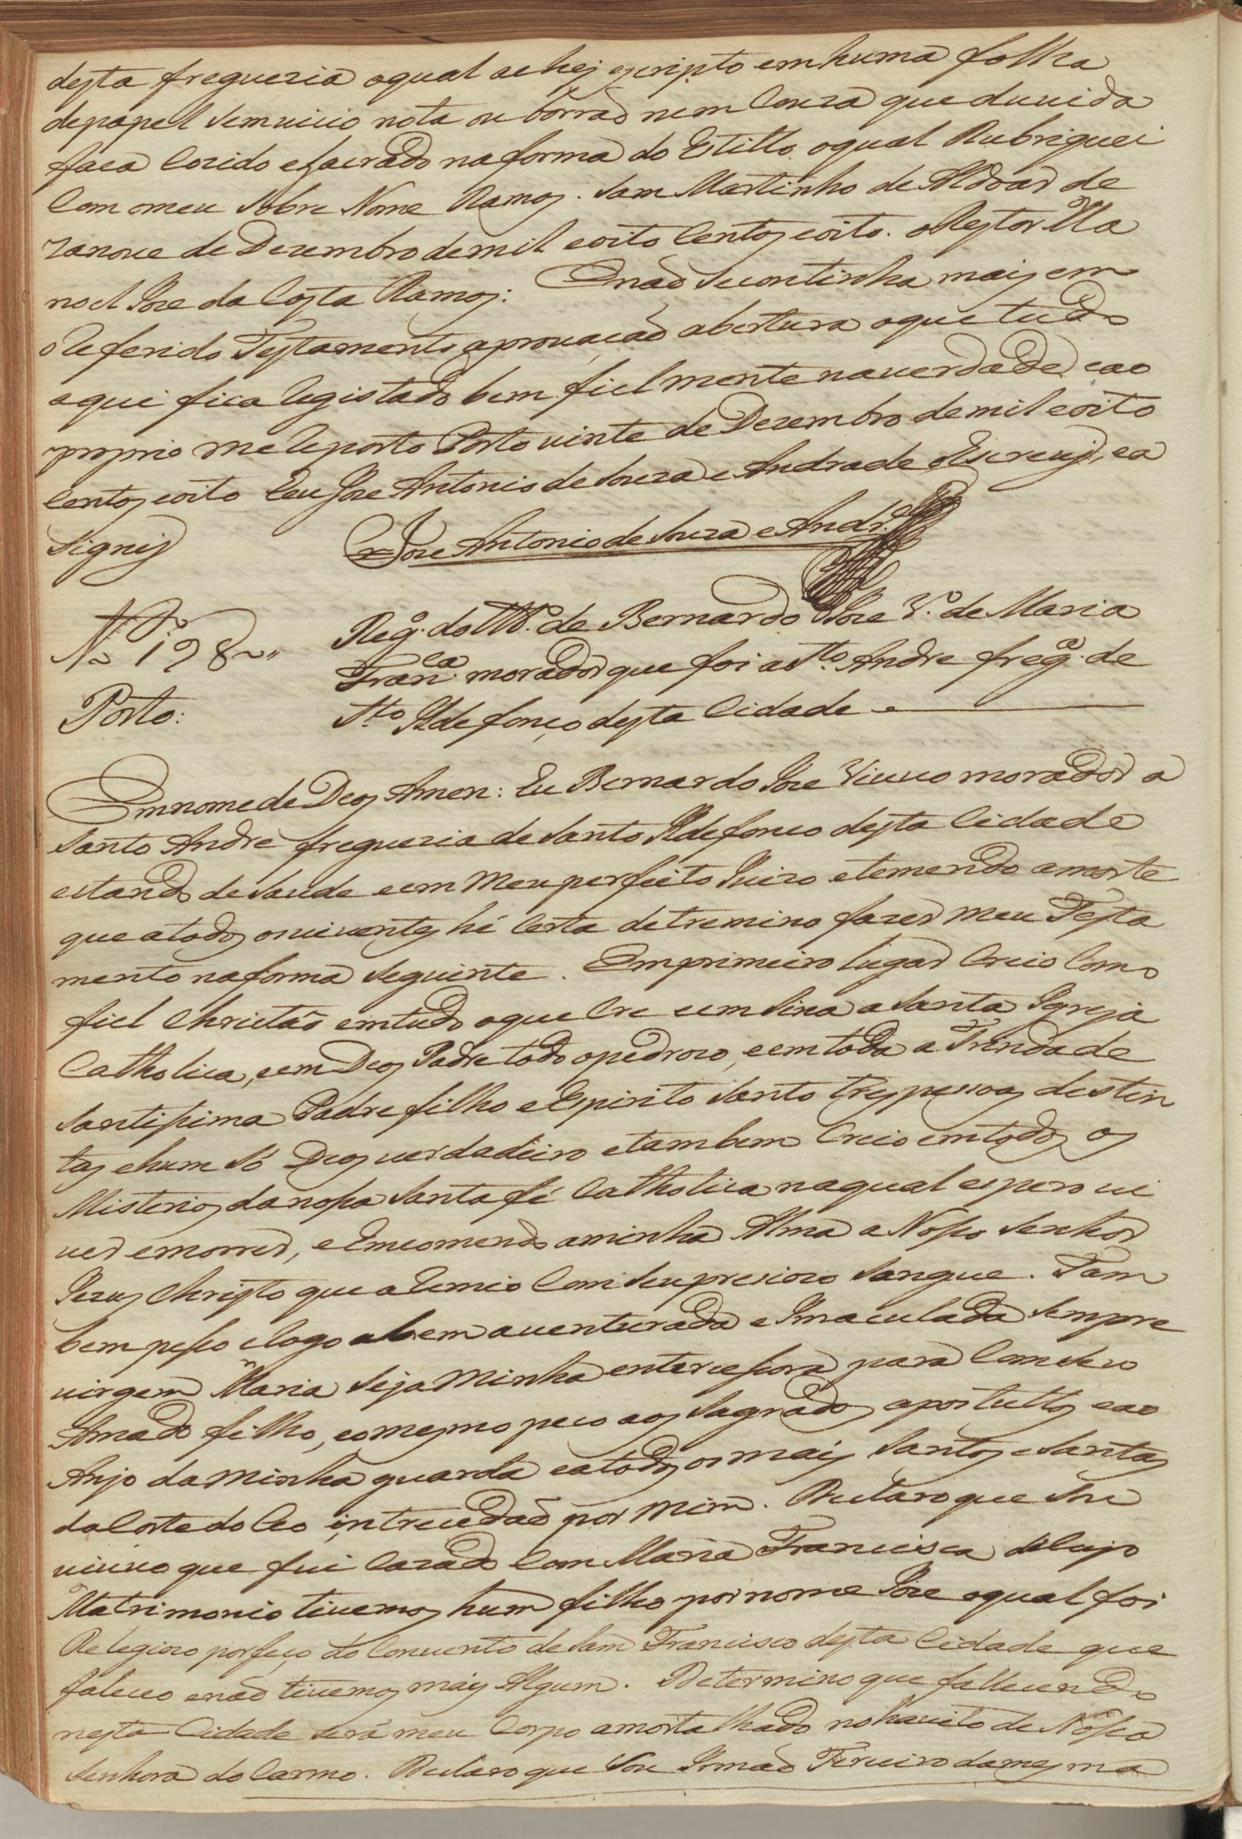 desta freguezia oqual achej escripto em huma folha
depapel sem vicio nota ou borrao nem couza que duvida
faca cozido elacrado naforma do Estillo oqual Rubriquei
com omeu sobre Nome Ramos. Sam Martinho de Aldoar de
zanove de Dezembro demil eoito centos eoito. o Reytor Ma
noel Joze da Costa Ramos: Enaõ secontinha mais em
o Referido Testamento aprouaçaõ abertura oque tudo
aqui fica Registado bem fielmente naverdade eao
proprio me Reporto Porto vinte de Dezembro demil eoito
centos eoito Eeu Joze Antonio de Souza e Andrade o Escrevj, ea
signej Joze Antonio de Souza e Andr.e
N.o 198
Porto:
Reg.o do Tt.o de Bernardo Joze V.o de Maria
Fran.ca morador que foi a S.to Andre freg.a de
S.to Ildefonço desta Cidade
Emnome de Deos Amen: Eu Bernardo Joze Viuvo morador a
Santo Andre freguezia de Santo Ildefonco desta Cidade
estando de saude eem Meu perfeito Juizo etemendo amorte
que atodos osviventes hé certa detremino fazer Meu Testa
mento naforma seguinte. Emprimeiro lugar Creio como
fiel Christaõ emtudo oque Cre eemsina a Santa Igreja
Catholica, eem Deos Padre todo opedrozo, eemtoda a Trindade
Santissima Padre filho e Espirito Santo tres pessoas destin
tas ehum só Deos verdadeiro etambem Creio emtodos os
Misterios danossa Santa fé Catholica naqual espero vi
ver emorrer, e Emcomendo aminha Alma a Nosso Senhor
Jezus Christo que a Remio com seu preciozo Sangue. Tam
bem pesso eRogo abem aventurada e Imaculada sempre
virgem Maria seja Minha entercessora para com seu
Amado filho, eomesmo peco aos Sagrados apostullos eao
Anjo da Minha guarda eatodos os mais Santos e Santas
da Corte do Ceo intrecedaõ por Mim. Declaro que sou
viuvo que fui cazado com Maria Francisca de cujo
Matrimonio tivemos hum filho pornome Joze oqual foi
Relegiozo porfeço do Convento de Sam Francisco desta Cidade que
faleceo enaõ tivemos mais Algum. Determino que fallecendo
nesta Cidade será meu Corpo amortalhado nohavito de Nossa
Senhora do Carmo. Declaro que sou Irmaõ Terceiro damesma